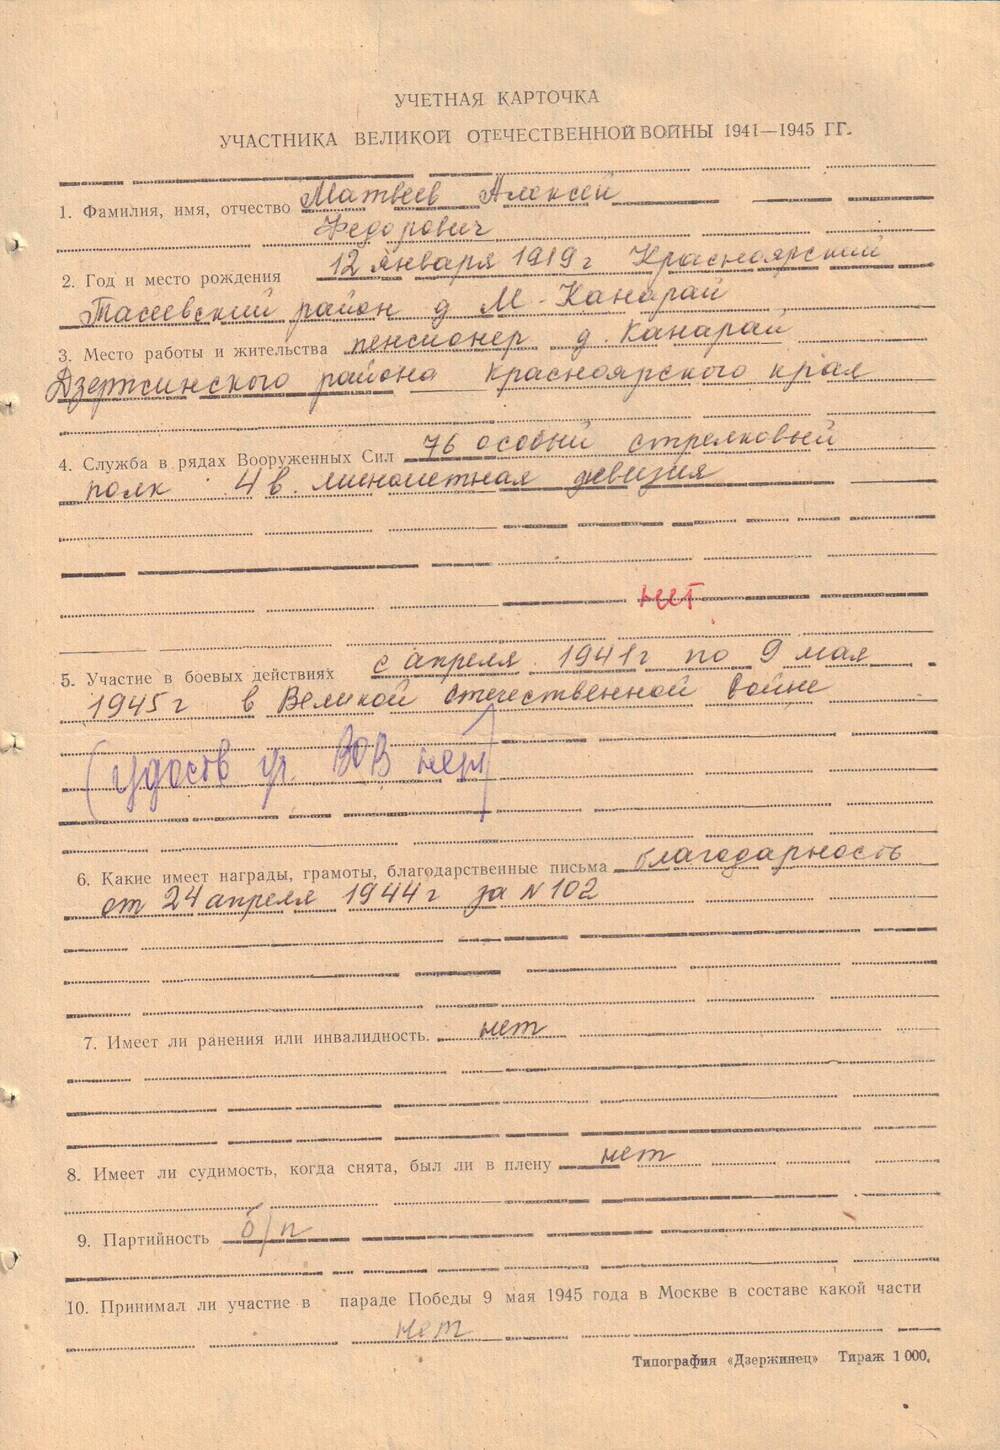 УЧЕТНАЯ КАРТОЧКА
УЧАСТНИКА ВЕЛИКОЙ ОТЕЧЕСТВЕННОЙ ВОЙНЫ 1941—1945 ГГ.
1. Фамилия, имя, отчество Матвеев Алексей
Федорович
2. Год и место рождения 12 января 1919 г Красноярский
Тасеевский район д М-Канарай
3. Место работы и жительства пенсионер д. Канарай
Дзержинского района Красноярского края
4. Служба в рядах Вооруженных Сил 76 особый стрелковый
полк 4 в. минометная дивизия
нет
5. Участие в боевых действиях с апреля 1941 г по 9 мая
1945 г в Великой Отечественной войне
(удостов уч. ВОВ нет)
6. Какие имеет награды, грамоты, благодарственные письма благодарность
от 24 апреля 1944 г за N 102
7. Имеет ли ранения или инвалидность. нет
8. Имеет ли судимость, когда снята, был ли в плену нет
9. Партийность б/п
10. Принимал ли участие в параде Победы 9 мая 1945 года в Москве в составе какой части
нет
Типография «Дзержинец» Тираж 1 000.